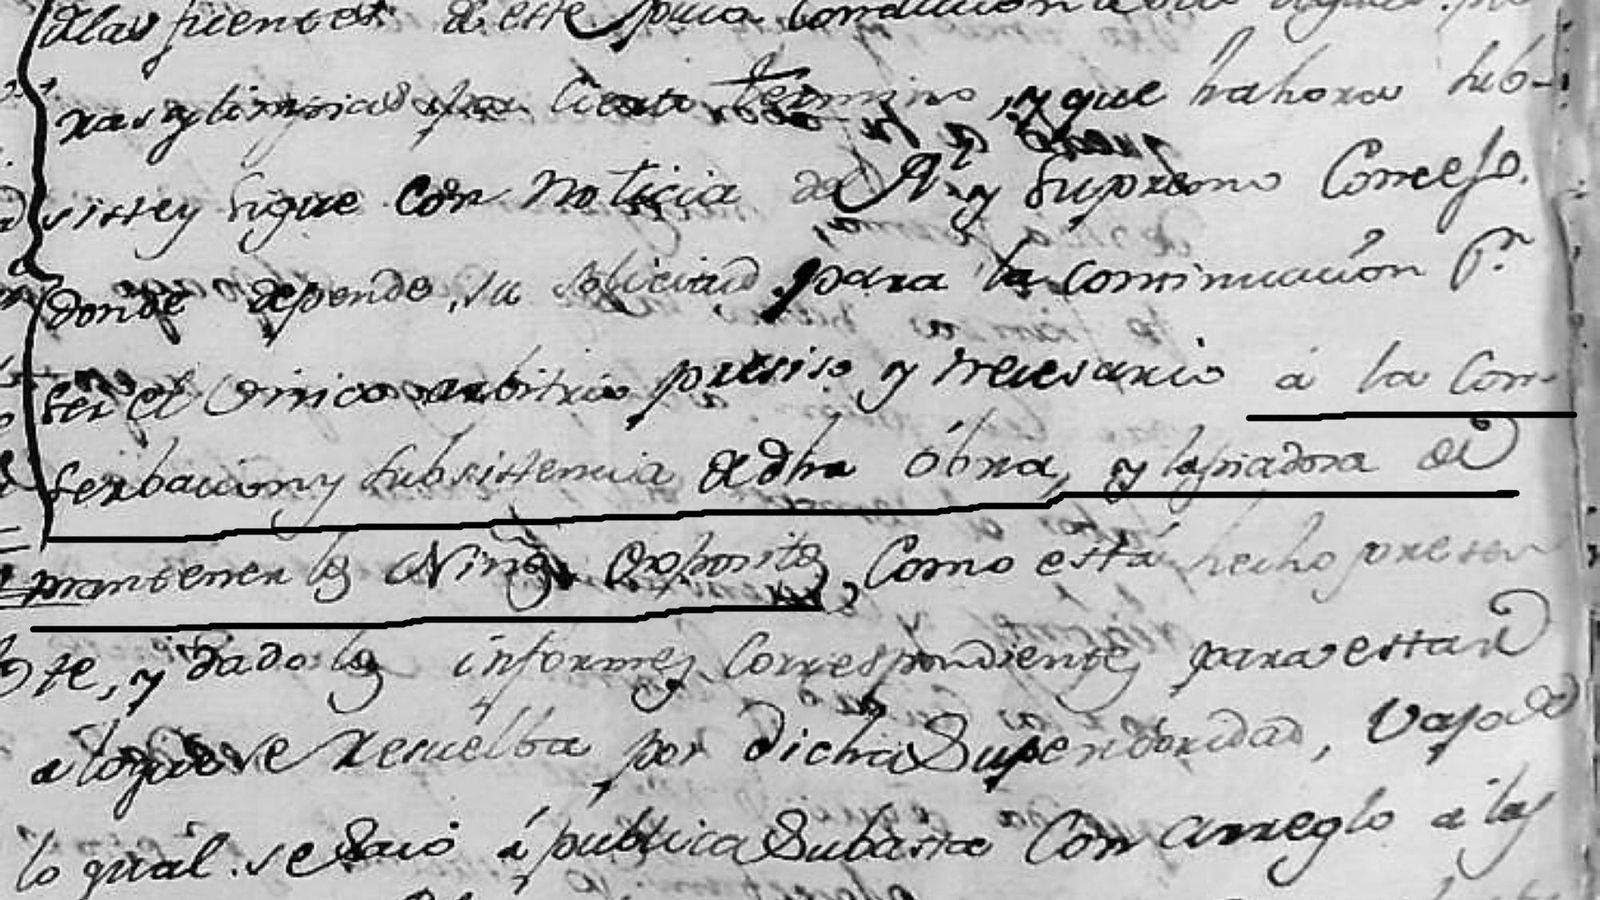 delas fuentes de este, para conducion de sus aguas
ras y limpias por cierto termino, y que hahora sub-
siste y sigue con noticia del Rl. y Supremo Consejo.
donde depende su solicitud para la continuacion Pr.
ser el Unico arbitrio presiso y necesario á la Con-
serbacion y subsistencia de dha óbra, y la piadosa de
mantener los Niños Expositos, Como está hecho presen
te, y dado los informes Correspondientes para estar
a loque se resuelba por dicha Superioridad, vajo de
lo qual se sacó á publica Subasta Con arreglo a las